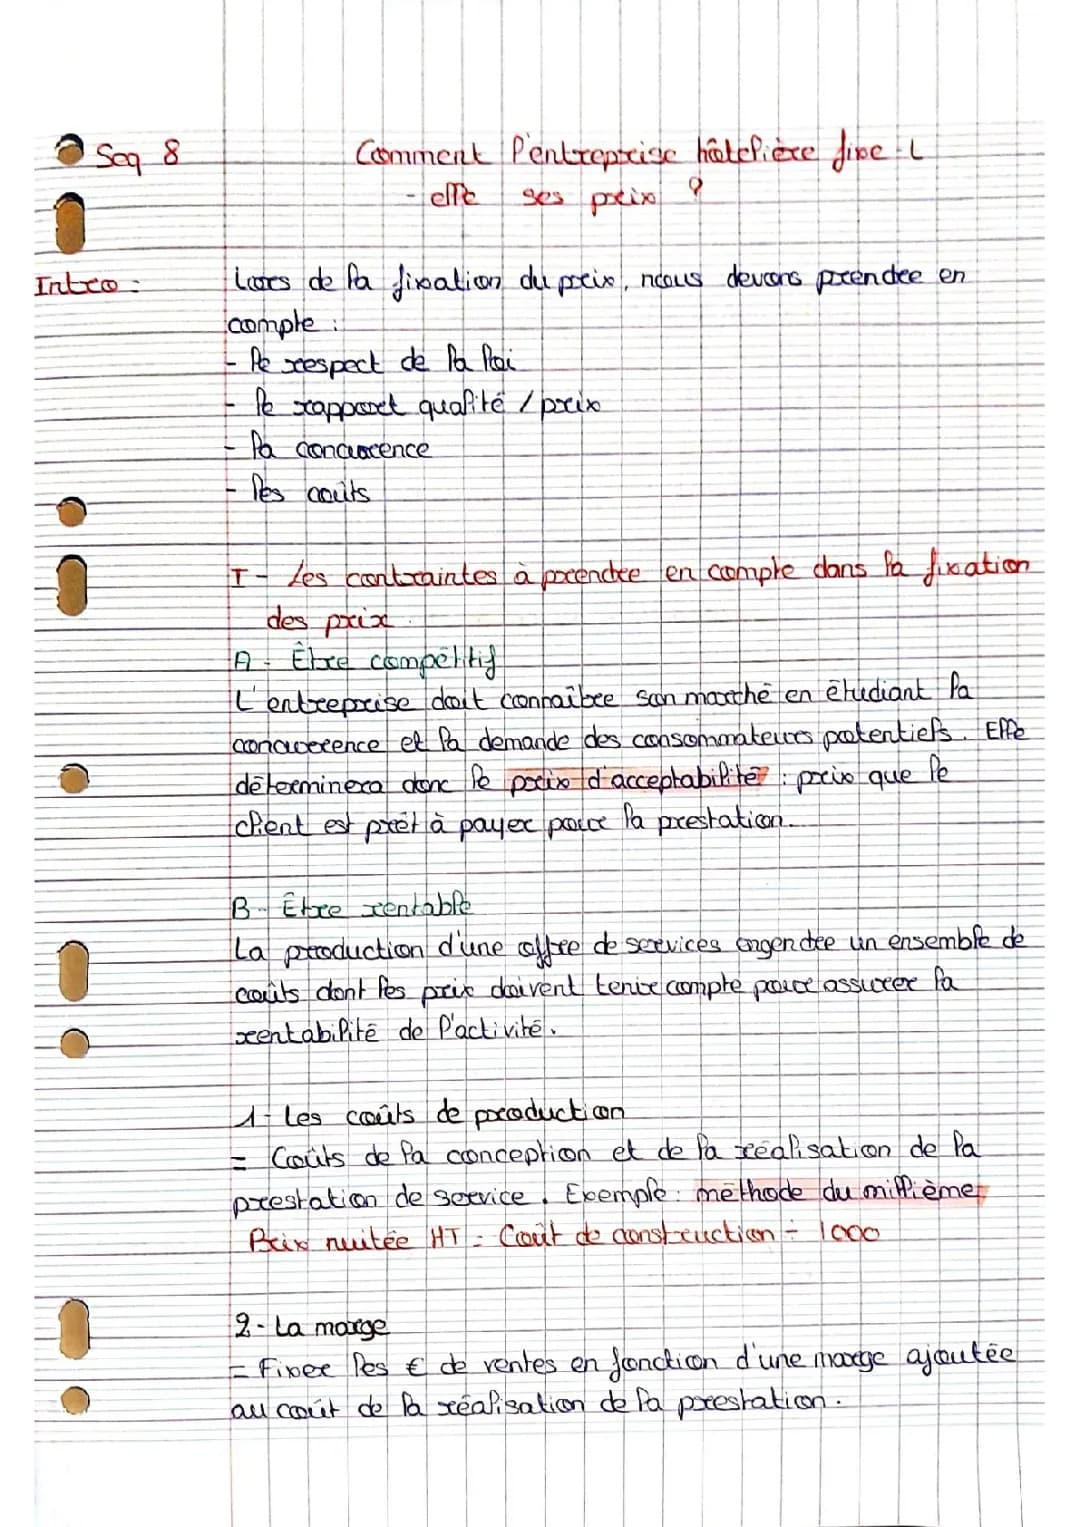 Seq 8
Comment l'entreprise hôtelière fixe-t
-elle ses prix ?
Intro :
Lors de la fixation du prix, nous devons prendre en
compte :
- le respect de la loi
- le rapport qualité / prix
- la concurrence
- les coûts
I - Les contraintes à prendre en compte dans la fixation
des prix.
A - Être compétitif
L'entreprise doit connaître son marché en étudiant la
concurrence et la demande des consommateurs potentiels. Elle
déterminera donc le prix d'acceptabilité : prix que le
client est prêt à payer pour la prestation.
B - Être rentable
La production d'une offre de services engendre un ensemble de
coûts dont les prix doivent tenir compte pour assurer la
rentabilité de l'activité.
1 - Les coûts de production
= Coûts de la conception et de la réalisation de la
prestation de service. Exemple : méthode du millième
Prix nuitée HT = Coût de construction ÷ 1000
2 - La marge
= Fixer les € de ventes en fonction d'une marge ajoutée
au coût de la réalisation de la prestation.